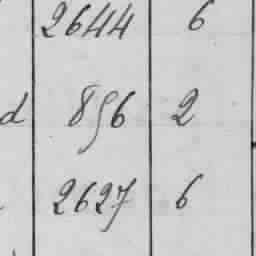 2644 6
d 896 2
2627 6